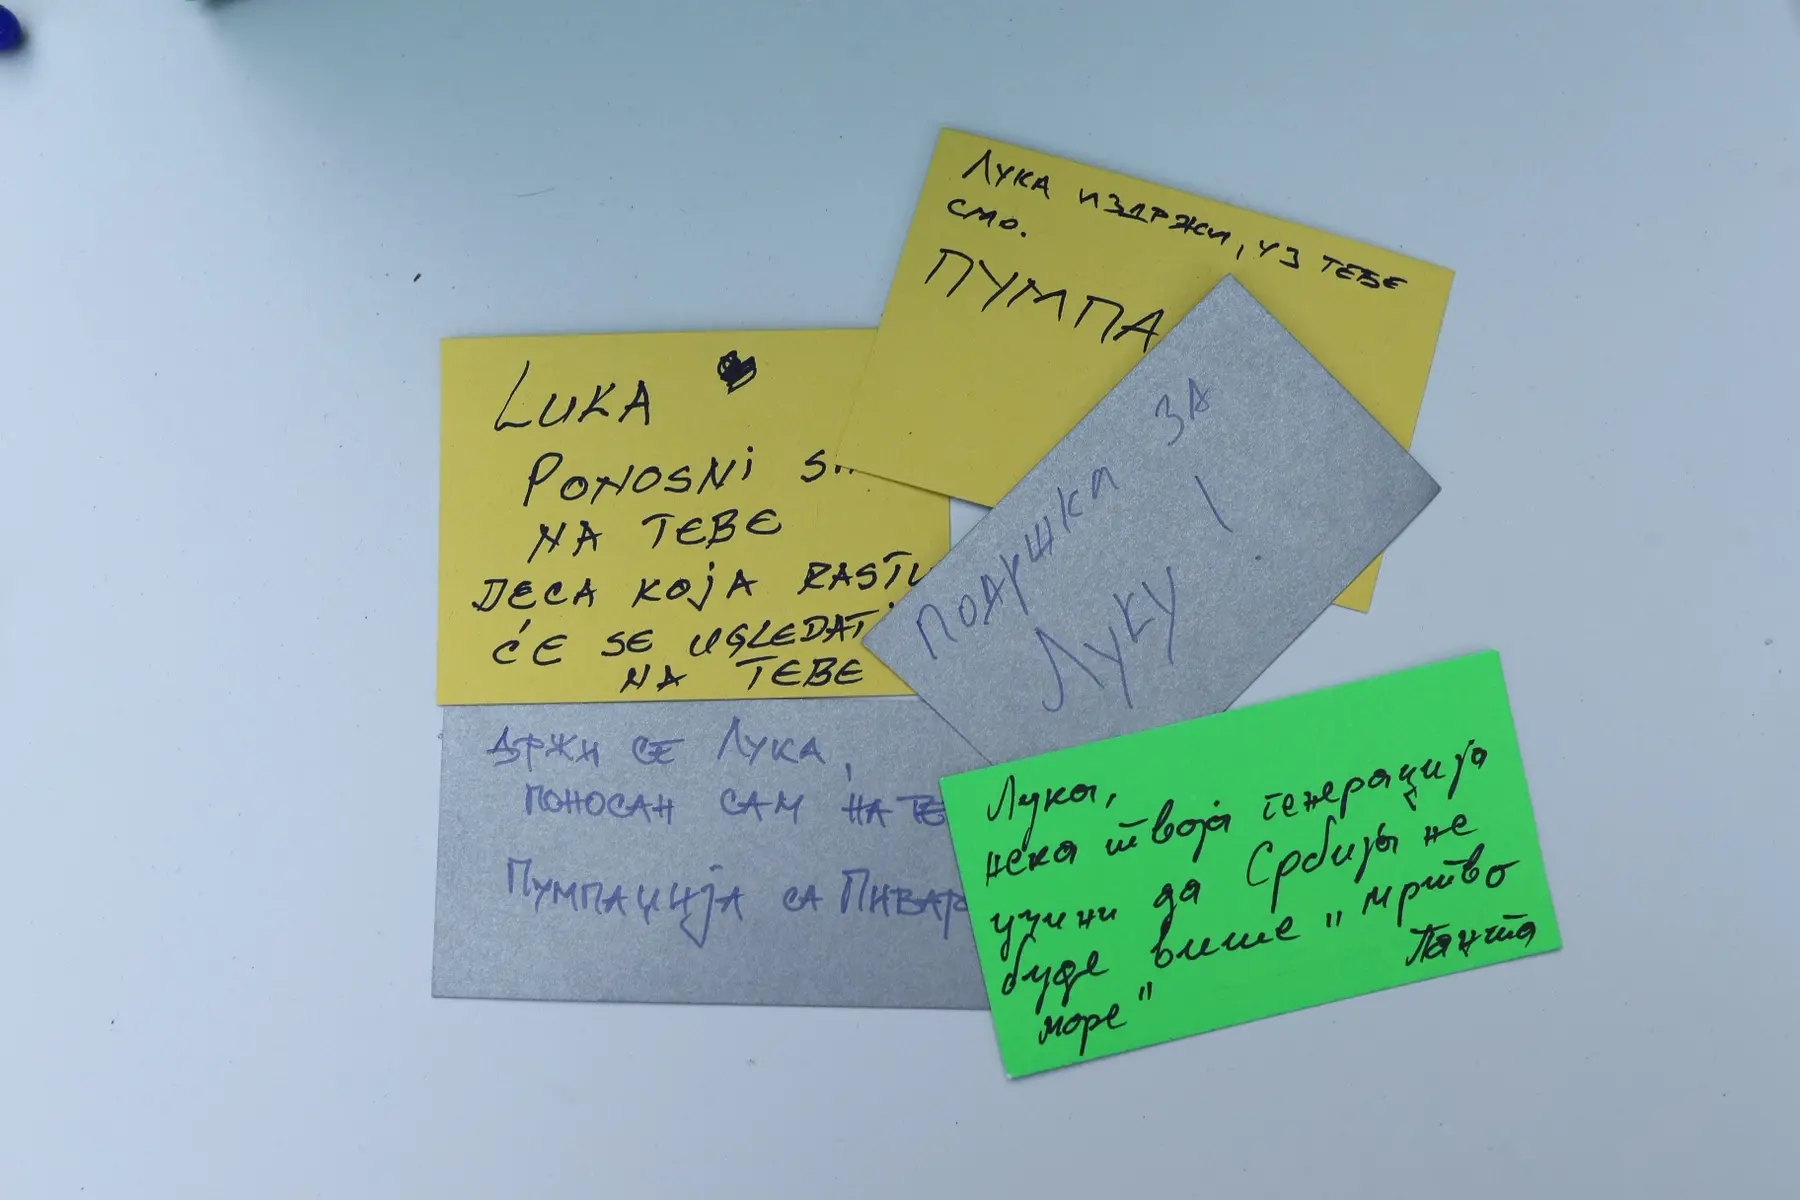 Лука издржи, уз тебе
смо.
ПУМПА
LUKA
PONOSNI
NA TEBE
DECA KOJA RASTU
ĆE SE UGLEDATI
NA TEBE
ПОДРШКА ЗА
ЛУКУ !
ДРЖИ СЕ ЛУКА,
ПОНОСАН САМ НА ТЕ
ПУМПАЦИЈА СА ПИВАР
Лука,
нека твоја генерација
учини да Србија не
буде више "мртво
море"
Панта